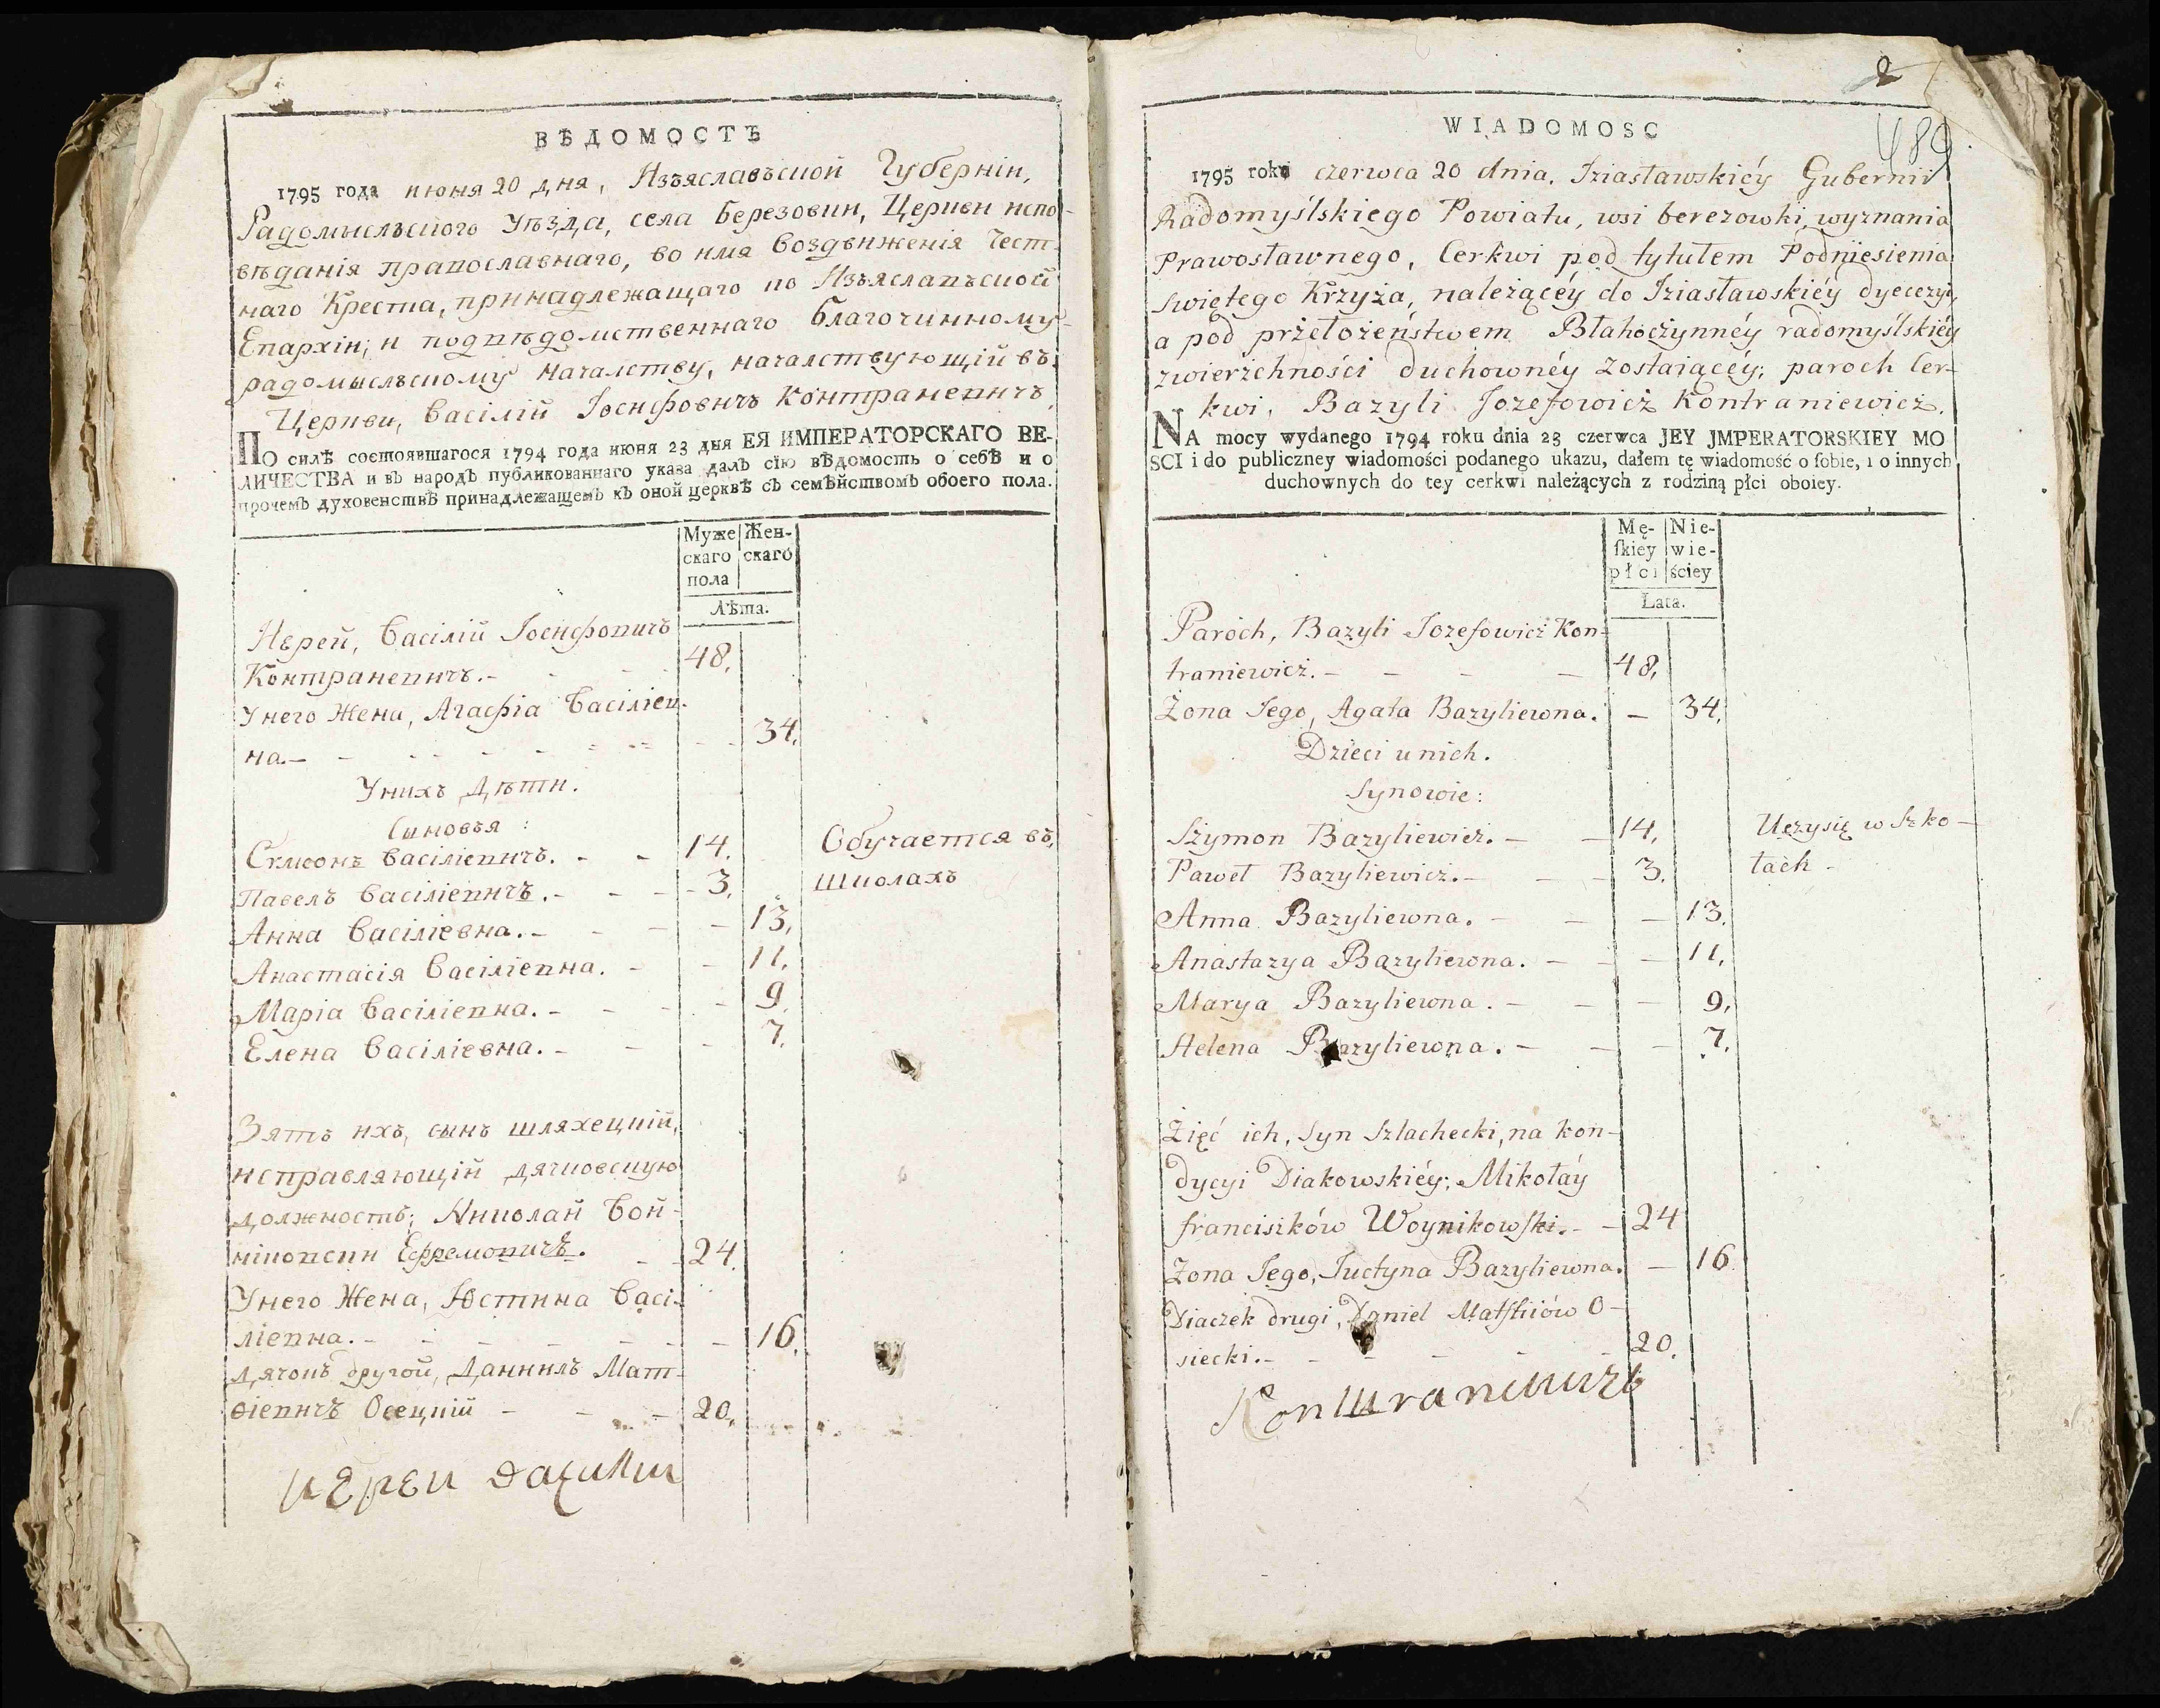 ВѢДОМОСТЬ
1795 года июня 20 дня, Изъяславъской Губерніи,
Радомысльского Уѣзда, села Березовки, Церкви испо-
вѣданія православнаго, во имя Воздвиженія Чест-
наго Креста, принадлежащаго по Изъяславъской
Епархіи; и подвѣдомственнаго Благочинному
радомысльскому началству, началствующій въ
Церкви, Василій Іосифовичъ Контраневичъ.
ПО силѣ состоявшагося 1794 года июня 23 дня ЕЯ ИМПЕРАТОРСКАГО ВЕ-
ЛИЧЕСТВА и въ народъ публикованнаго указа далъ сїю вѣдомость о себѣ и о
прочемъ духовенствѣ принадлежащемъ къ оной церквѣ съ семѣйствомъ обоего пола.
Муже Жен-
скаго скаго
пола
Лѣта.
Иерей, Василій Іосифовичъ
Контраневичъ. - 48.
У него Жена, Агафіа Василіев-
на. - 34.
У нихъ Дѣти.
Сыновья :
Симеонъ Василіевичъ. - 14. Обучается въ
Павелъ Василіевичъ. - 3. Школахъ
Анна Василіевна. - 13.
Анастасія Василіевна. - 11.
Маріа Василіевна. - 9.
Елена Василіевна. - 7.
Зять ихъ, сынъ шляхецкій,
исправляющій дячковскую
должность; Николай Вой-
ніковски Ефремовичъ. - 24.
У него Жена, Юстина Васі-
ліевна. - 16.
Дячокъ другой, Даниилъ Мат-
ѳіевичъ Осецкій - 20.
иерей василии
2
489
WIADOMOSC
1795 roku czerwca 20 dnia, Iziasławskiéy Gubernii
Radomyślskiego Powiatu, wsi berezowki, wyznania
Prawosławnego, Cerkwi pod tytułem Podniesienia
swiętego Krzyża, należącéy do Iziasławskiéy dyecezyi,
a pod przełożeństwem Błahoczynnéy radomyślskiéy
zwierzchności duchownéy zostaiącéy; paroch Cer-
kwi, Bazyli Jozefowicz Kontraniewicz.
NA mocy wydanego 1794 roku dnia 23 czerwca JEY JMPERATORSKIEY MO
SCI i do publiczney wiadomości podanego ukazu, dałem tę wiadomość o ſobie, i o innych
duchownych do tey cerkwi należących z rodziną płci oboiey.
Mę- Nie-
ſkiey wie-
płci ściey
Lata.
Paroch, Bazyli Jozefowicz Kon-
traniewicz. - 48.
Żona Jego, Agata Bazyliewna. - 34.
Dzieci u nich.
Synowie:
Szymon Bazyliewicz. - 14. Uczy się w Szko-
Paweł Bazyliewicz. - 3. łach -
Anna Bazyliewna. - 13.
Anastazya Bazyliewna. - 11.
Marya Bazyliewna. - 9.
Helena Bazyliewna. - 7.
Zięć ich, Syn Szlachecki, na kon-
dycyi Diakowskiéy; Mikołaÿ
franciszków Woynikowſki. - 24
Żona Jego, Juctyna Bazyliewna. - 16.
Diaczek drugi, Daniel Matſfiiów O-
siecki. - 20.